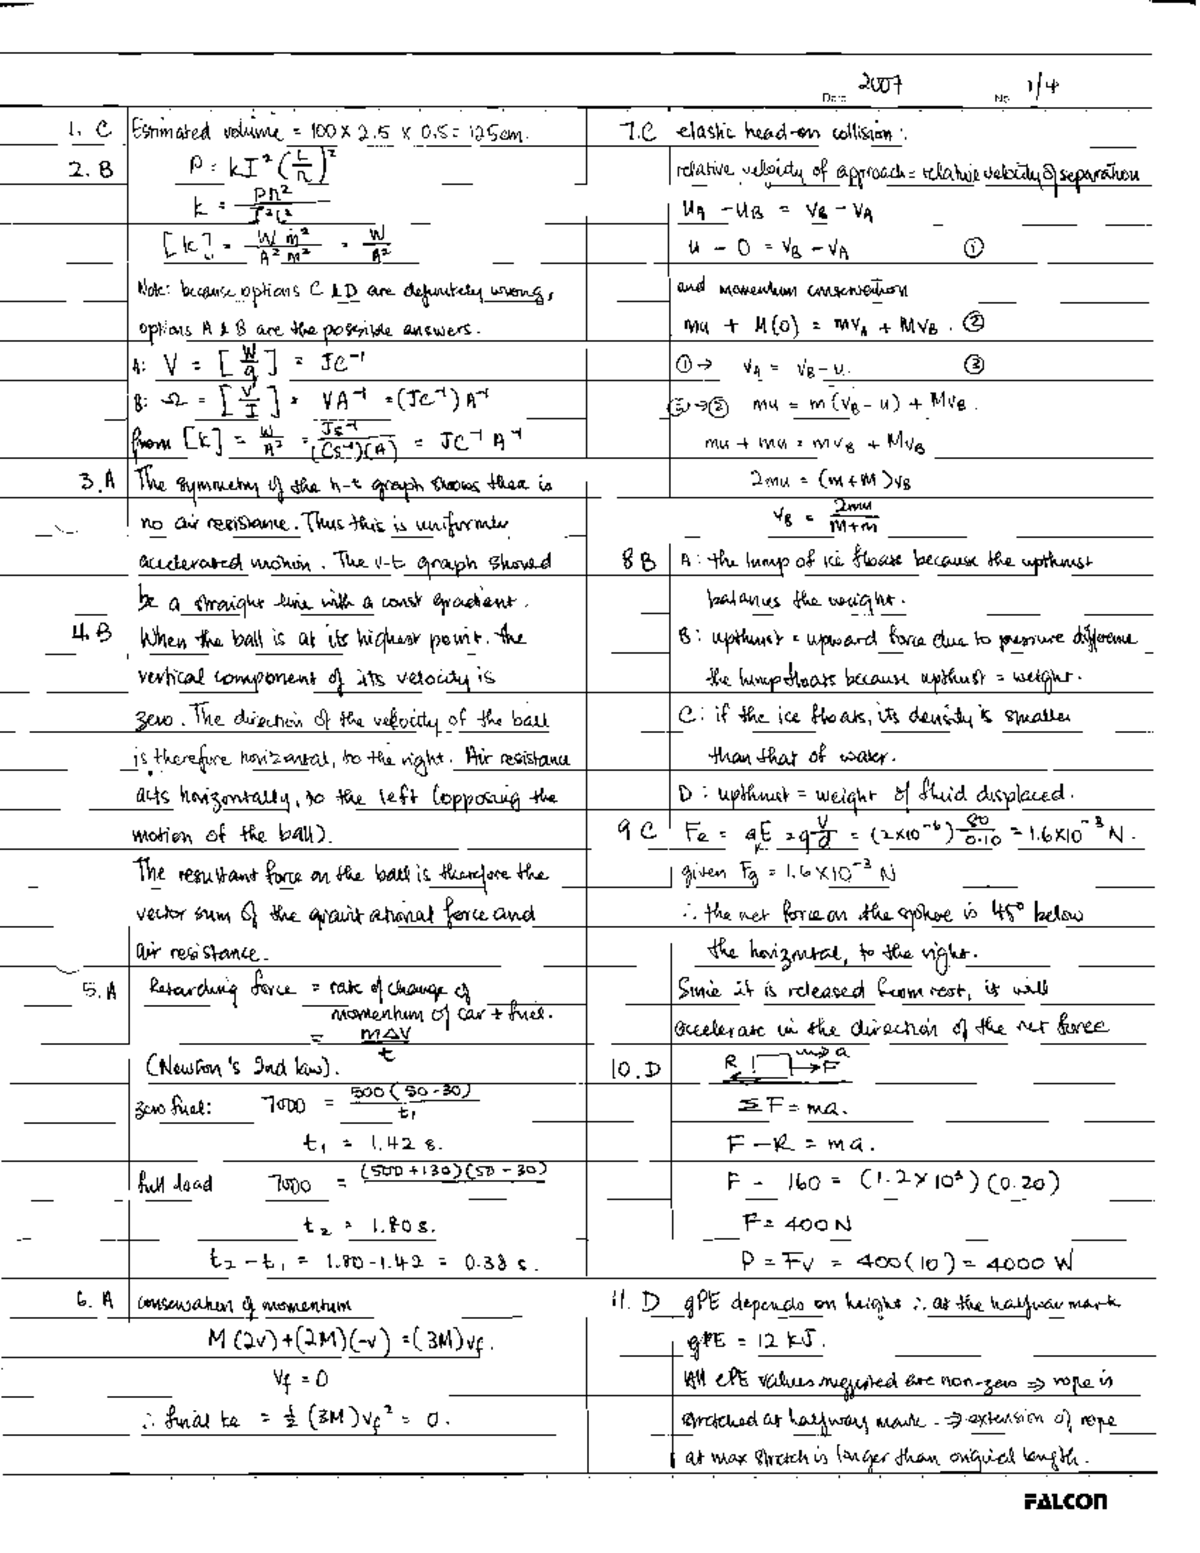 Date 2007 No. 1/4
1. C Estimated volume = 100 × 2.5 × 0.5 = 125cm.
2. B P = kI² (L/n)²
k = Pn²/I²L²
[k] = W m²/A² m² = W/A²
Note: because options C & D are definitely wrong,
options A & B are the possible answers.
A: V = [W/q] = JC⁻¹
B: Ω = [V/I] = VA⁻¹ = (JC⁻¹)A⁻¹
from [k] = W/A² = Js⁻¹/(Cs⁻¹)(A) = JC⁻¹A⁻¹
3. A The symmetry of the h-t graph shows there is
no air resistance. Thus this is uniformly
accelerated motion. The v-t graph should
be a straight line with a const gradient.
4. B When the ball is at its highest point, the
vertical component of its velocity is
zero. The direction of the velocity of the ball
is therefore horizontal, to the right. Air resistance
acts horizontally, to the left (opposing the
motion of the ball).
The resultant force on the ball is therefore the
vector sum of the gravitational force and
air resistance.
5. A Retarding force = rate of change of
momentum of car + fuel.
= mΔV/t
(Newton's 2nd law).
zero fuel: 7000 = 500(50-30)/t₁
t₁ = 1.42 s.
full load 7000 = (500+130)(50-30)
t₂ = 1.80s.
t₂ - t₁ = 1.80 - 1.42 = 0.38 s.
6. A conservation of momentum
M(2v) + (2M)(-v) = (3M)vf.
Vf = 0
∴ final ke = ½ (3M)vf² = 0.
7. C elastic head-on collision:
relative velocity of approach = relative velocity of separation
uA - uB = vB - vA
u - 0 = vB - vA ①
and momentum conservation
mu + M(0) = mvA + MVB. ②
① → vA = vB - u. ③
③→② mu = m(vB - u) + MvB.
mu + mu = mvB + MvB
2mu = (m+M)vB
vB = 2mu/M+m
8 B A: the lump of ice floats because the upthrust
balances the weight.
B: upthrust = upward force due to pressure difference
the lump floats because upthrust = weight.
C: if the ice floats, its density is smaller
than that of water.
D: upthrust = weight of fluid displaced.
9 C Fe = qE = q V/d = (2×10⁻⁶) 80/0.10 = 1.6×10⁻³ N.
given Fg = 1.6×10⁻³ N
∴ the net force on the sphere is 45° below
the horizontal, to the right.
Since it is released from rest, it will
accelerate in the direction of the net force
10. D R → a → F
ΣF = ma.
F - R = ma.
F - 160 = (1.2×10³)(0.20)
F = 400 N
P = Fv = 400(10) = 4000 W
11. D gPE depends on height ∴ at the halfway mark
gPE = 12 kJ.
All ePE values required are non-zero ⇒ rope is
stretched at halfway mark. ⇒ extension of rope
at max stretch is longer than original length.
FALCON